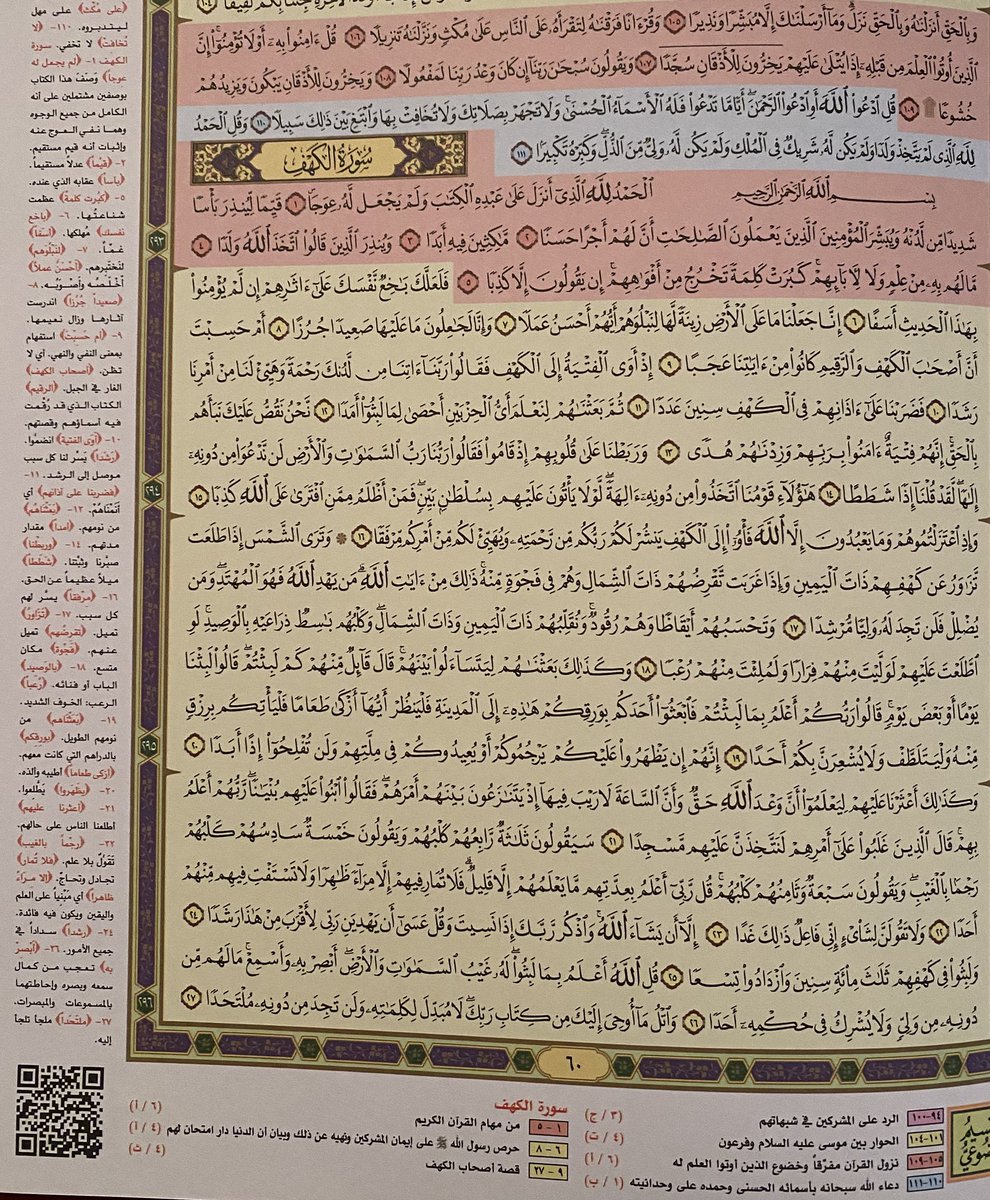 وَبِالْحَقِّ أَنزَلْنَاهُ وَبِالْحَقِّ نَزَلَ وَمَا أَرْسَلْنَاكَ إِلَّا مُبَشِّرًا وَنَذِيرًا ١٠٥ وَقُرْءَانًا فَرَقْنَاهُ لِتَقْرَأَهُ عَلَى النَّاسِ عَلَى مُكْثٍ وَنَزَّلْنَاهُ تَنزِيلًا ١٠٦ قُلْ ءَامِنُوا بِهِ أَوْ لَا تُؤْمِنُوا إِنَّ
الَّذِينَ أُوتُوا الْعِلْمَ مِن قَبْلِهِ إِذَا يُتْلَى عَلَيْهِمْ يَخِرُّونَ لِلْأَذْقَانِ سُجَّدًا ١٠٧ وَيَقُولُونَ سُبْحَانَ رَبِّنَا إِن كَانَ وَعْدُ رَبِّنَا لَمَفْعُولًا ١٠٨ وَيَخِرُّونَ لِلْأَذْقَانِ يَبْكُونَ وَيَزِيدُهُمْ
خُشُوعًا ۩ ١٠٩ قُلِ ادْعُوا اللَّهَ أَوِ ادْعُوا الرَّحْمَنَ أَيًّا مَّا تَدْعُوا فَلَهُ الْأَسْمَاءُ الْحُسْنَى وَلَا تَجْهَرْ بِصَلَاتِكَ وَلَا تُخَافِتْ بِهَا وَابْتَغِ بَيْنَ ذَلِكَ سَبِيلًا ١١٠ وَقُلِ الْحَمْدُ
لِلَّهِ الَّذِي لَمْ يَتَّخِذْ وَلَدًا وَلَمْ يَكُن لَّهُ شَرِيكٌ فِي الْمُلْكِ وَلَمْ يَكُن لَّهُ وَلِيٌّ مِّنَ الذُّلِّ وَكَبِّرْهُ تَكْبِيرًا ١١١
سُورَةُ الْكَهْفِ
بِسْمِ اللَّهِ الرَّحْمَنِ الرَّحِيمِ الْحَمْدُ لِلَّهِ الَّذِي أَنزَلَ عَلَى عَبْدِهِ الْكِتَابَ وَلَمْ يَجْعَل لَّهُ عِوَجًا ١ قَيِّمًا لِّيُنذِرَ بَأْسًا
شَدِيدًا مِّن لَّدُنْهُ وَيُبَشِّرَ الْمُؤْمِنِينَ الَّذِينَ يَعْمَلُونَ الصَّالِحَاتِ أَنَّ لَهُمْ أَجْرًا حَسَنًا ٢ مَّاكِثِينَ فِيهِ أَبَدًا ٣ وَيُنذِرَ الَّذِينَ قَالُوا اتَّخَذَ اللَّهُ وَلَدًا ٤
مَّا لَهُم بِهِ مِنْ عِلْمٍ وَلَا لِآبَائِهِمْ كَبُرَتْ كَلِمَةً تَخْرُجُ مِنْ أَفْوَاهِهِمْ إِن يَقُولُونَ إِلَّا كَذِبًا ٥ فَلَعَلَّكَ بَاخِعٌ نَّفْسَكَ عَلَى ءَاثَارِهِمْ إِن لَّمْ يُؤْمِنُوا
بِهَذَا الْحَدِيثِ أَسَفًا ٦ إِنَّا جَعَلْنَا مَا عَلَى الْأَرْضِ زِينَةً لَّهَا لِنَبْلُوَهُمْ أَيُّهُمْ أَحْسَنُ عَمَلًا ٧ وَإِنَّا لَجَاعِلُونَ مَا عَلَيْهَا صَعِيدًا جُرُزًا ٨ أَمْ حَسِبْتَ
أَنَّ أَصْحَابَ الْكَهْفِ وَالرَّقِيمِ كَانُوا مِنْ ءَايَاتِنَا عَجَبًا ٩ إِذْ أَوَى الْفِتْيَةُ إِلَى الْكَهْفِ فَقَالُوا رَبَّنَا ءَاتِنَا مِن لَّدُنكَ رَحْمَةً وَهَيِّئْ لَنَا مِنْ أَمْرِنَا
رَشَدًا ١٠ فَضَرَبْنَا عَلَى ءَاذَانِهِمْ فِي الْكَهْفِ سِنِينَ عَدَدًا ١١ ثُمَّ بَعَثْنَاهُمْ لِنَعْلَمَ أَيُّ الْحِزْبَيْنِ أَحْصَى لِمَا لَبِثُوا أَمَدًا ١٢ نَّحْنُ نَقُصُّ عَلَيْكَ نَبَأَهُم
بِالْحَقِّ إِنَّهُمْ فِتْيَةٌ ءَامَنُوا بِرَبِّهِمْ وَزِدْنَاهُمْ هُدًى ١٣ وَرَبَطْنَا عَلَى قُلُوبِهِمْ إِذْ قَامُوا فَقَالُوا رَبُّنَا رَبُّ السَّمَاوَاتِ وَالْأَرْضِ لَن نَّدْعُوَا مِن دُونِهِ
إِلَهًا لَّقَدْ قُلْنَا إِذًا شَطَطًا ١٤ هَؤُلَاءِ قَوْمُنَا اتَّخَذُوا مِن دُونِهِ ءَالِهَةً لَّوْلَا يَأْتُونَ عَلَيْهِم بِسُلْطَانٍ بَيِّنٍ فَمَنْ أَظْلَمُ مِمَّنِ افْتَرَى عَلَى اللَّهِ كَذِبًا ١٥
وَإِذِ اعْتَزَلْتُمُوهُمْ وَمَا يَعْبُدُونَ إِلَّا اللَّهَ فَأْوُوا إِلَى الْكَهْفِ يَنشُرْ لَكُمْ رَبُّكُم مِّن رَّحْمَتِهِ وَيُهَيِّئْ لَكُم مِّنْ أَمْرِكُم مِّرْفَقًا ١٦ ۞ وَتَرَى الشَّمْسَ إِذَا طَلَعَت
تَّزَاوَرُ عَن كَهْفِهِمْ ذَاتَ الْيَمِينِ وَإِذَا غَرَبَت تَّقْرِضُهُمْ ذَاتَ الشِّمَالِ وَهُمْ فِي فَجْوَةٍ مِّنْهُ ذَلِكَ مِنْ ءَايَاتِ اللَّهِ مَن يَهْدِ اللَّهُ فَهُوَ الْمُهْتَدِ وَمَن
يُضْلِلْ فَلَن تَجِدَ لَهُ وَلِيًّا مُّرْشِدًا ١٧ وَتَحْسَبُهُمْ أَيْقَاظًا وَهُمْ رُقُودٌ وَنُقَلِّبُهُمْ ذَاتَ الْيَمِينِ وَذَاتَ الشِّمَالِ وَكَلْبُهُم بَاسِطٌ ذِرَاعَيْهِ بِالْوَصِيدِ لَوِ
اطَّلَعْتَ عَلَيْهِمْ لَوَلَّيْتَ مِنْهُمْ فِرَارًا وَلَمُلِئْتَ مِنْهُمْ رُعْبًا ١٨ وَكَذَلِكَ بَعَثْنَاهُمْ لِيَتَسَاءَلُوا بَيْنَهُمْ قَالَ قَائِلٌ مِّنْهُمْ كَمْ لَبِثْتُمْ قَالُوا لَبِثْنَا
يَوْمًا أَوْ بَعْضَ يَوْمٍ قَالُوا رَبُّكُمْ أَعْلَمُ بِمَا لَبِثْتُمْ فَابْعَثُوا أَحَدَكُم بِوَرِقِكُمْ هَذِهِ إِلَى الْمَدِينَةِ فَلْيَنظُرْ أَيُّهَا أَزْكَى طَعَامًا فَلْيَأْتِكُم بِرِزْقٍ
مِّنْهُ وَلْيَتَلَطَّفْ وَلَا يُشْعِرَنَّ بِكُمْ أَحَدًا ١٩ إِنَّهُمْ إِن يَظْهَرُوا عَلَيْكُمْ يَرْجُمُوكُمْ أَوْ يُعِيدُوكُمْ فِي مِلَّتِهِمْ وَلَن تُفْلِحُوا إِذًا أَبَدًا ٢٠
وَكَذَلِكَ أَعْثَرْنَا عَلَيْهِمْ لِيَعْلَمُوا أَنَّ وَعْدَ اللَّهِ حَقٌّ وَأَنَّ السَّاعَةَ لَا رَيْبَ فِيهَا إِذْ يَتَنَازَعُونَ بَيْنَهُمْ أَمْرَهُمْ فَقَالُوا ابْنُوا عَلَيْهِم بُنْيَانًا رَّبُّهُمْ أَعْلَمُ
بِهِمْ قَالَ الَّذِينَ غَلَبُوا عَلَى أَمْرِهِمْ لَنَتَّخِذَنَّ عَلَيْهِم مَّسْجِدًا ٢١ سَيَقُولُونَ ثَلَاثَةٌ رَّابِعُهُمْ كَلْبُهُمْ وَيَقُولُونَ خَمْسَةٌ سَادِسُهُمْ كَلْبُهُمْ
رَجْمًا بِالْغَيْبِ وَيَقُولُونَ سَبْعَةٌ وَثَامِنُهُمْ كَلْبُهُمْ قُل رَّبِّي أَعْلَمُ بِعِدَّتِهِم مَّا يَعْلَمُهُمْ إِلَّا قَلِيلٌ فَلَا تُمَارِ فِيهِمْ إِلَّا مِرَاءً ظَاهِرًا وَلَا تَسْتَفْتِ فِيهِم مِّنْهُمْ
أَحَدًا ٢٢ وَلَا تَقُولَنَّ لِشَايْءٍ إِنِّي فَاعِلٌ ذَلِكَ غَدًا ٢٣ إِلَّا أَن يَشَاءَ اللَّهُ وَاذْكُر رَّبَّكَ إِذَا نَسِيتَ وَقُلْ عَسَى أَن يَهْدِيَنِ رَبِّي لِأَقْرَبَ مِنْ هَذَا رَشَدًا ٢٤
وَلَبِثُوا فِي كَهْفِهِمْ ثَلَاثَ مِائَةٍ سِنِينَ وَازْدَادُوا تِسْعًا ٢٥ قُلِ اللَّهُ أَعْلَمُ بِمَا لَبِثُوا لَهُ غَيْبُ السَّمَاوَاتِ وَالْأَرْضِ أَبْصِرْ بِهِ وَأَسْمِعْ مَا لَهُم مِّن
دُونِهِ مِن وَلِيٍّ وَلَا يُشْرِكُ فِي حُكْمِهِ أَحَدًا ٢٦ وَاتْلُ مَا أُوحِيَ إِلَيْكَ مِن كِتَابِ رَبِّكَ لَا مُبَدِّلَ لِكَلِمَاتِهِ وَلَن تَجِدَ مِن دُونِهِ مُلْتَحَدًا ٢٧
٢٩٣
٢٩٤
٢٩٥
٢٩٦
٦٠
﴿على مكث﴾ على مهل
ليتدبروه. ١١٠- ﴿لا
تخافت﴾ لا تخفي. سورة
الكهف ١- ﴿لم يجعل له
عوجاً﴾ وَصَف هذا الكتاب
بوصفين مشتملين على أنه
الكامل من جميع الوجوه
وهما نفي العوج عنه
وإثبات أنه قيم مستقيم.
٢- ﴿قيماً﴾ عدلاً مستقيماً.
﴿بأساً﴾ عقابه الذي عنده.
٥- ﴿كبرت كلمة﴾ عظمت
شناعتُها. ٦- ﴿باخع
نفسك﴾ مُهلِكها. ﴿أسفاً﴾
غمّاً. ٧- ﴿لنبلوهم﴾
لنختبرهم. ﴿أحسن عملاً﴾
أخلصُه وأصوبُه. ٨-
﴿صعيداً جُرُزاً﴾ اندرست
آثارها وزال نعيمها.
٩- ﴿أم حسبت﴾ استفهام
بمعنى النفي والنهي. أي لا
تظن. ﴿أصحاب الكهف﴾
الغار في الجبل. ﴿الرقيم﴾
الكتاب الذي قد رُقمت
فيه أسماؤهم وقصتهم.
١٠- ﴿أوى الفتية﴾ انضمُّوا.
﴿رَشداً﴾ يسِّر لنا كل سبب
موصل إلى الرشد. ١١-
﴿فضربنا على آذانهم﴾ أي
أنَمْناهُمْ. ١٢- ﴿بعثناهم﴾
من نومهم. ﴿أمداً﴾ مقدار
مدتهم. ١٤- ﴿وربطنا﴾
صبَّرنا وثبَّتنا. ﴿شططاً﴾
ميلاً عظيماً عن الحق.
١٦- ﴿مرفقاً﴾ يسَّر لهم
كل سبب. ١٧- ﴿تزاور﴾
تميل. ﴿تقرضهم﴾ تميل
عنهم. ﴿فجوة﴾ مكان
متسع. ١٨- ﴿بالوصيد﴾
الباب أو فنائه. ﴿رعباً﴾
الرعب: الخوف الشديد.
١٩- ﴿بعثناهم﴾ من
نومهم الطويل. ﴿بورقكم﴾
بالدراهم التي كانت معهم.
﴿أزكى طعاماً﴾ أطيبه وألذه.
٢٠- ﴿يظهروا﴾ يَطَّلعوا.
٢١- ﴿أعثرنا عليهم﴾
أطلعنا الناس على حالهم.
٢٢- ﴿رجماً بالغيب﴾
تَقَوُّل بلا علم. ﴿فلا تمار﴾
تجادل وتحاجّ. ﴿إلا مراءً
ظاهراً﴾ أي مَبْنياً على العلم
واليقين ويكون فيه فائدة.
٢٤- ﴿رشداً﴾ سداداً في
جميع الأمور. ٢٦- ﴿أبصر
به﴾ تعجب من كمال
سمعه وبصره وإحاطتهما
بالمسموعات والمبصرات.
٢٧- ﴿ملتحداً﴾ ملجأ تلجأ
إليه.
٩٤-١٠٠ الرد على المشركين في شبهاتهم (٣ / ج)
١٠١-١٠٤ الحوار بين موسى عليه السلام وفرعون (٤ / ت)
١٠٥-١٠٩ نزول القرآن مفرَّقاً وخضوع الذين أوتوا العلم له (٦ / أ)
١١٠-١١١ دعاء الله سبحانه بأسمائه الحسنى وحمده على وحدانيته (١ / ب)
سورة الكهف
١ - ٥ من مهام القرآن الكريم (٦ / أ)
٦ - ٨ حرص رسول الله ﷺ على إيمان المشركين ونهيه عن ذلك وبيان أن الدنيا دار امتحان لهم (٤ / أ)
٩ - ٢٧ قصة أصحاب الكهف (٤ / ث)